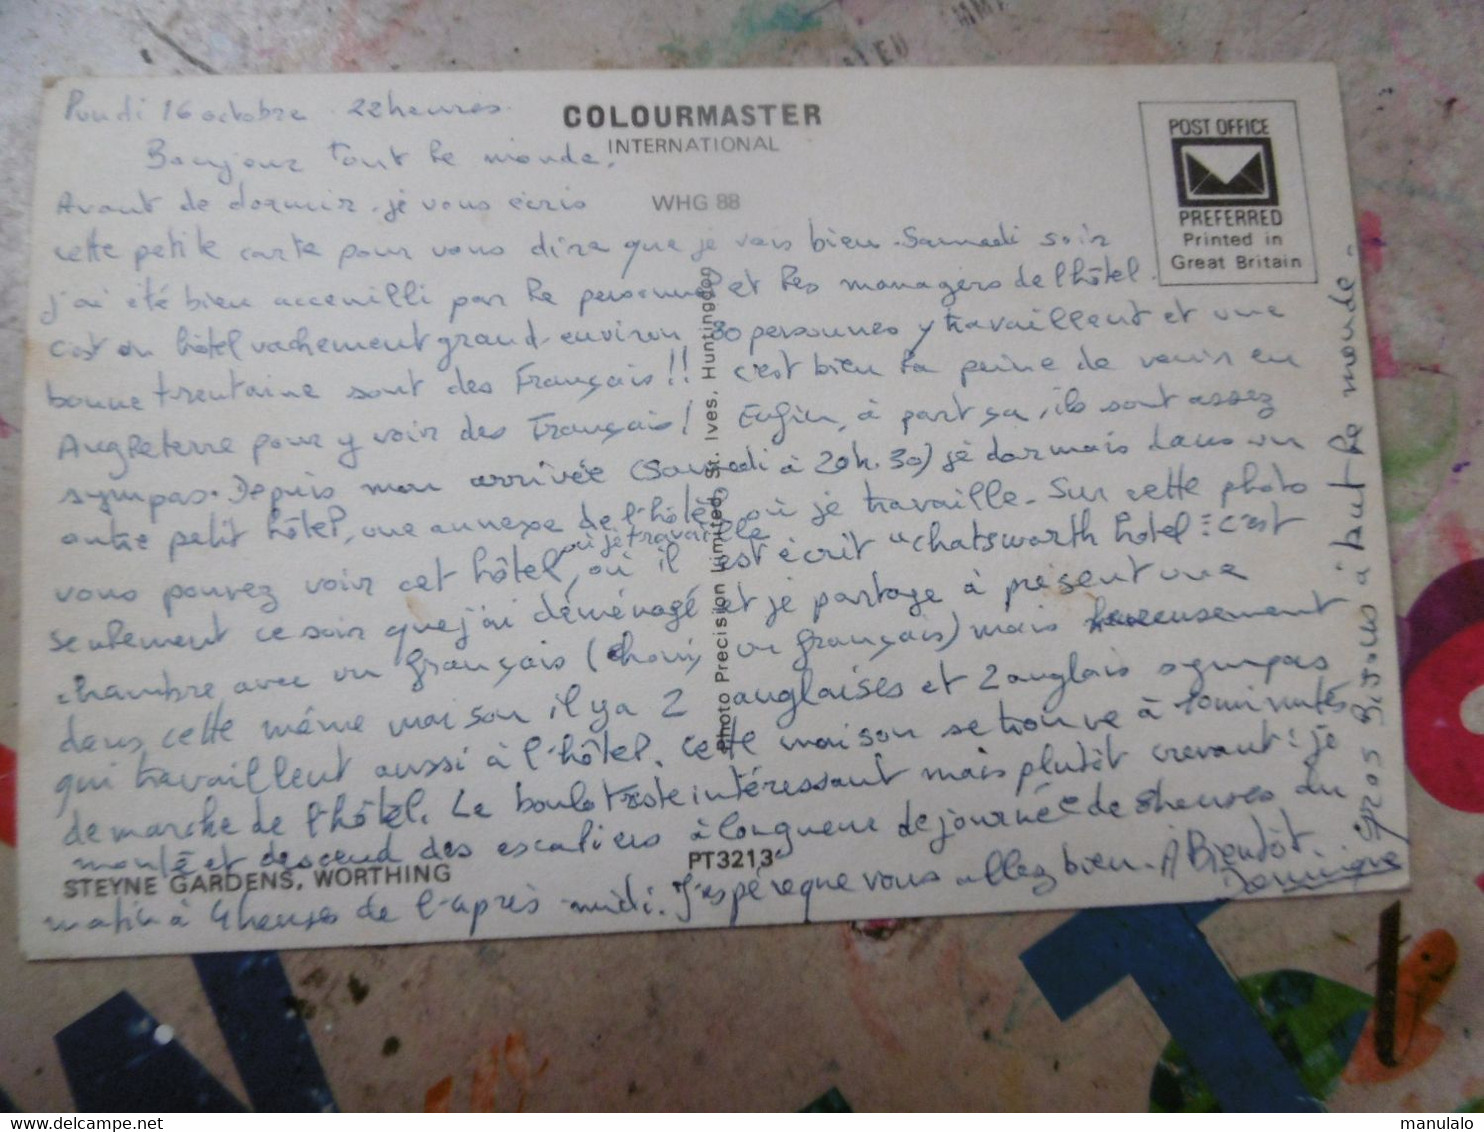 Lundi 16 octobre 22 heures.
Bonjour tout le monde,
Avant de dormir, je vous écris
cette petite carte pour vous dire que je vais bien. Samedi soir
j'ai été bien accueilli par le personnel et les managers de l'hôtel.
C'est un hôtel vachement grand. environ 80 personnes y travaillent et une
bonne trentaine sont des Français!! c'est bien la peine de venir en
Angleterre pour y voir des Français! Enfin, à part ça, ils sont assez
sympas. Depuis mon arrivée (Samedi à 20h.30) je dormais dans un
autre petit hôtel, une annexe de l'hôtel où je travaille. Sur cette photo
vous pouvez voir cet hôtel, où je travaille où il est écrit "Chatsworth hotel". C'est
seulement ce soir que j'ai déménagé et je partage à présent une
chambre avec un français ( un français) mais heureusement
dans cette même maison il y a 2 anglaises et 2 anglais sympas
qui travaillent aussi à l'hôtel. Cette maison se trouve à 10 minutes
de marche de l'hôtel. Le boulot est intéressant mais plutôt crevant: je
monte et descend des escaliers à longueur de journée de 8 heures du
matin à 4 heures de l'après-midi. J'espère que vous allez bien. A Bientôt.
Dominique
gros Bisous à tout le monde.
COLOURMASTER
INTERNATIONAL
WHG 88
POST OFFICE
PREFERRED
Printed in
Great Britain
Photo Precision Limited, St. Ives, Huntingdon
PT3213
STEYNE GARDENS, WORTHING
delcampe.net
manulalo